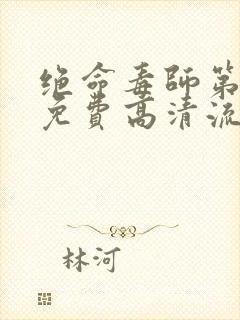 绝命毒師第
免費高清流
林河